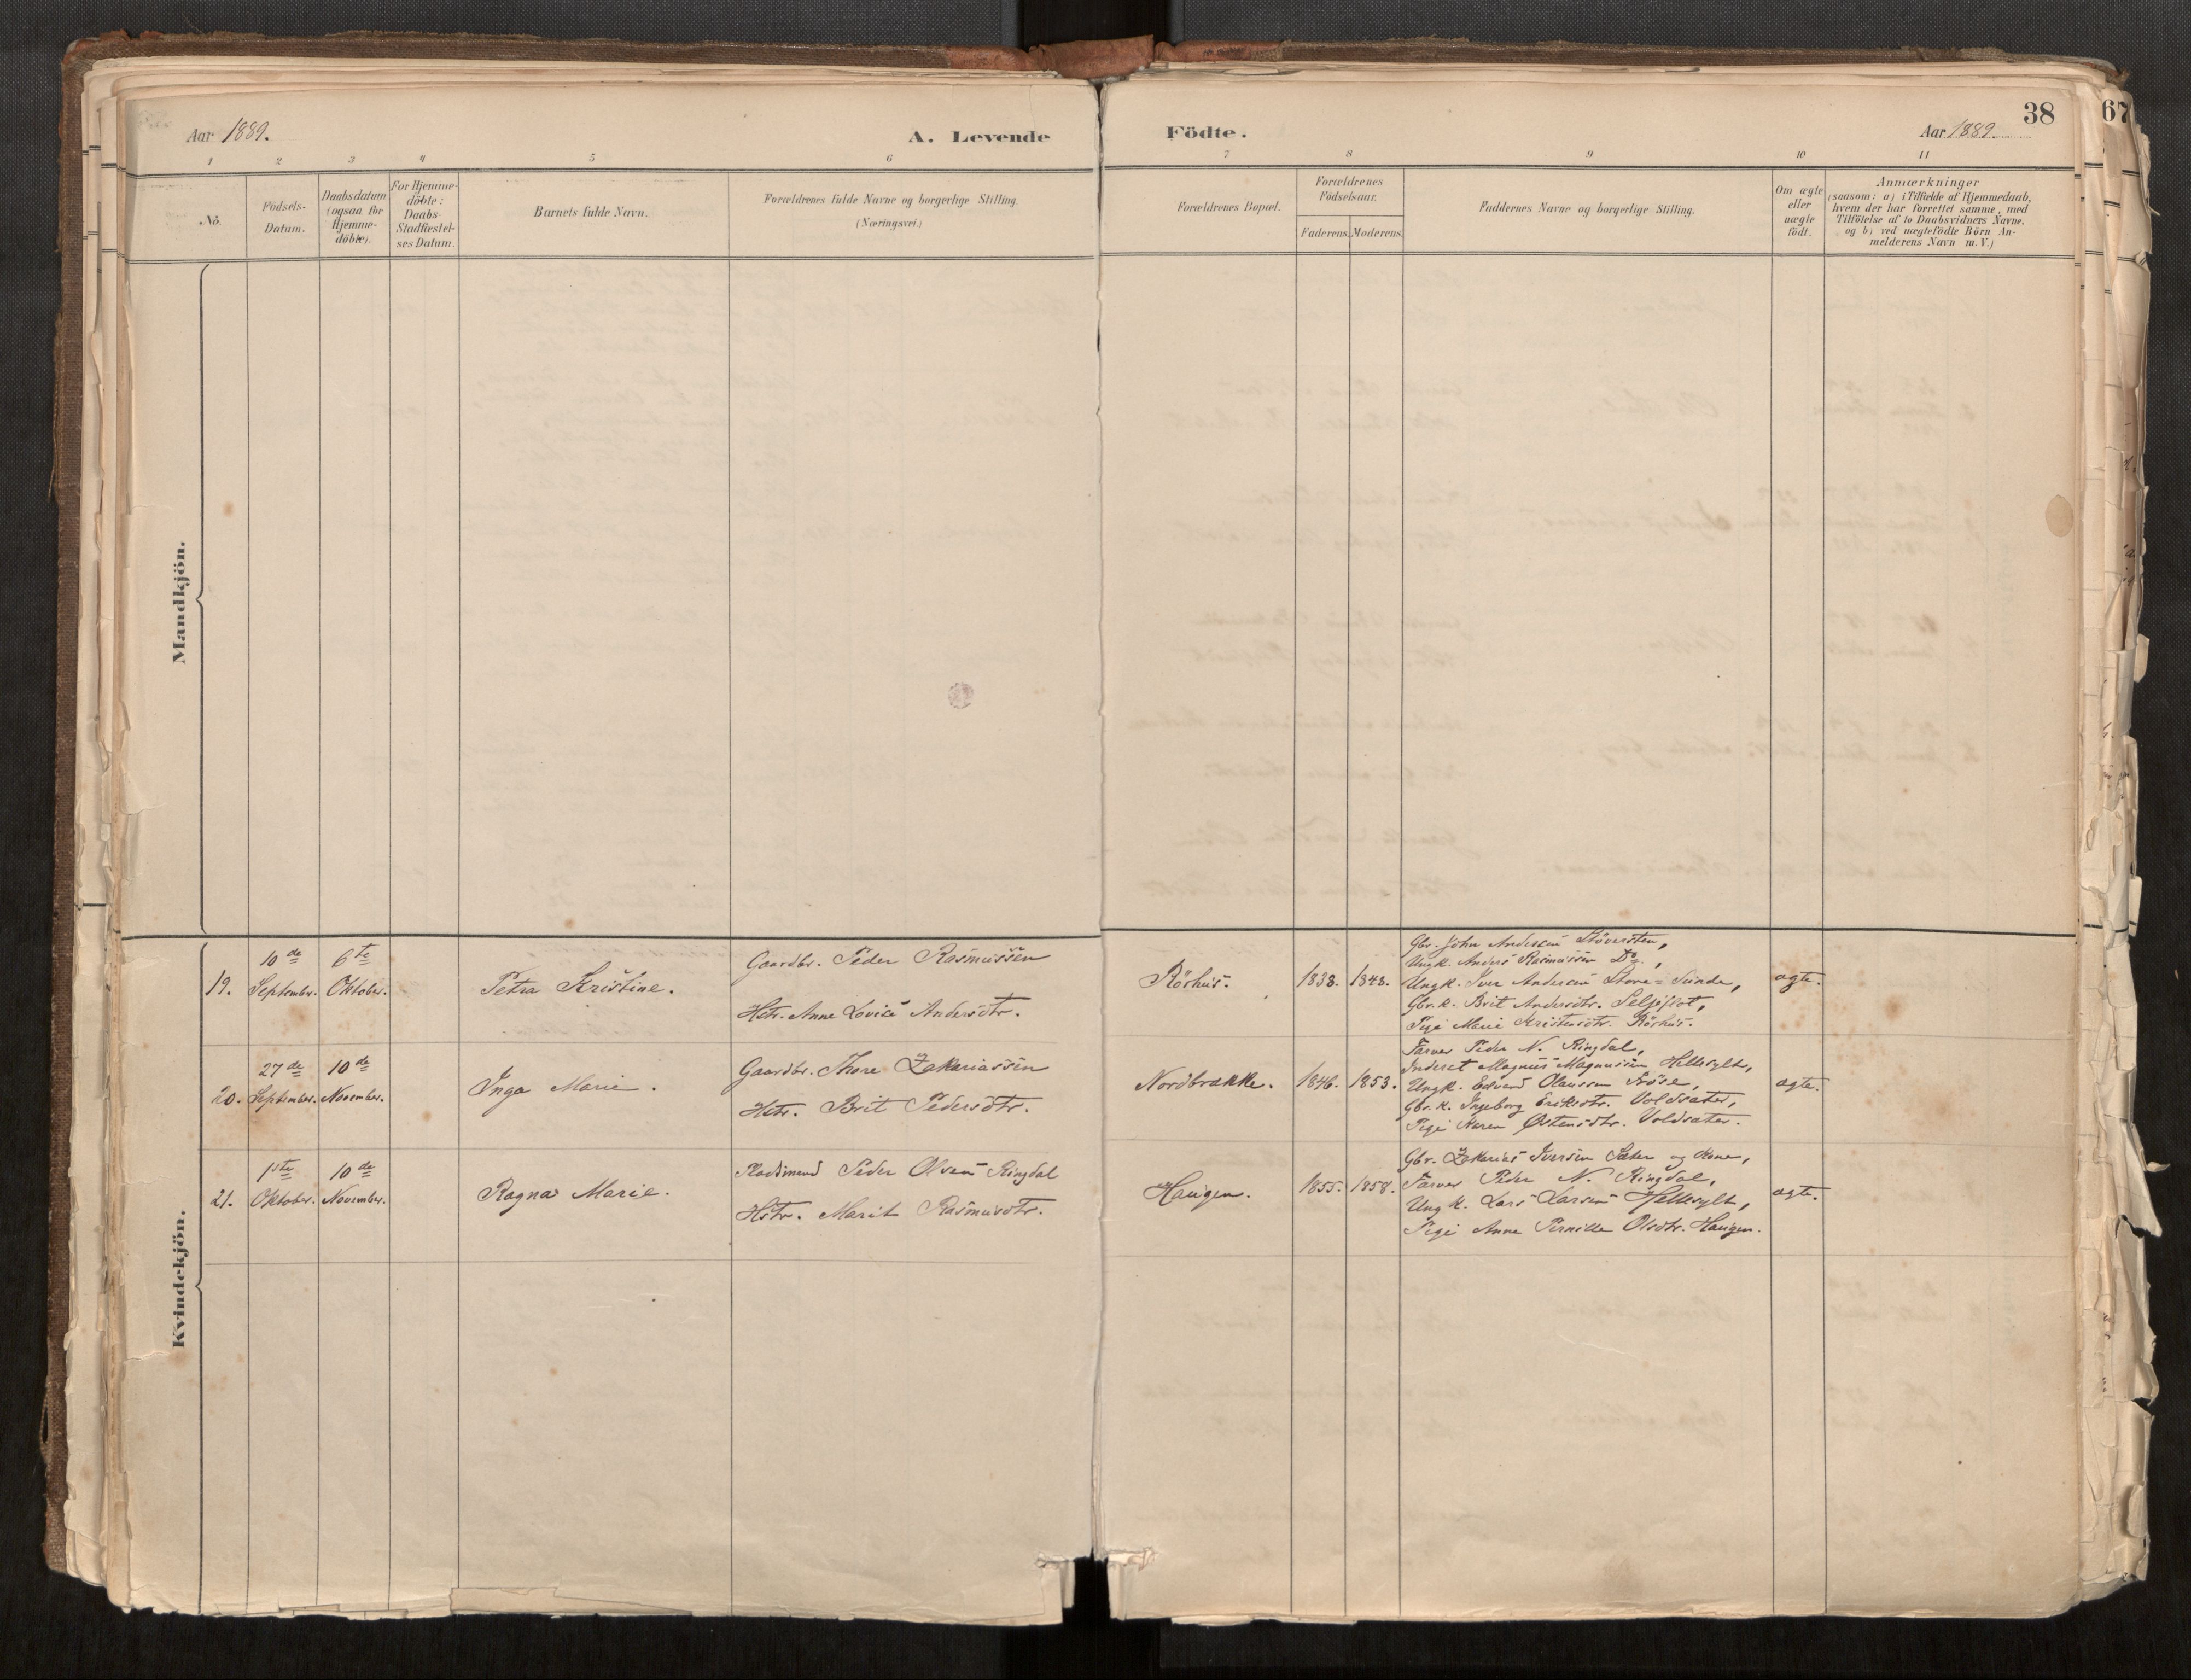 38
67
Aar 1889.
A. Levende
Födte.
Aar 1889.
1 2 3 4 5 6 7 8 9 10 11
No.
Födsels-
Datum.
Daabsdatum
(ogsaa for
Hjemme-
döbte).
For Hjemme-
döbte:
Daabs-
Stadfæstel-
ses Datum.
Barnets fulde Navn.
Forældrenes fulde Navne og borgerlige Stilling.
(Næringsvei.)
Forældrenes Bopæl.
Forældrenes
Födselsaar.
Faderens. Moderens.
Faddernes Navne og borgerlige Stilling.
Om ægte
eller
uægte
födt.
Anmærkninger
(saasom: a) i Tilfælde af Hjemmedaab,
hvem der har forrettet samme, med
Tilföielse af to Daabsvidners Navne.
og b) ved uægtefödte Börn An-
melderens Navn m. V.)
Mandkjön.
Kvindekjön.
19.
10de
September.
6te
Oktober.
Petra Kristine.
Gaardbr. Peder Rasmussen
Hstr. Anne Lovise Andersdtr.
Rörhus.
1838. 1848.
Gbr. John Andersen Stöversten,
Ungk. Anders Rasmussen Do.,
Ungk. Iver Andersen Store=Sunde,
Gbr. k. Brit Andersdtr. Seljeflot,
Pige Marie Kristensdtr. Rörhus.
ægte.
20.
27de
September.
10de
November.
Inga Marie.
Gaardbr. Thore Zakariassen
Hstr. Brit Pedersdtr.
Nordbrække.
1846. 1853.
Farver Peder N. Ringdal,
Inderst Magnus Magnussen Hellesylt,
Ungk. Edvard Olaussen
Gbr. k. Ingeborg Eriksdtr. Voldsæter,
Pige Karen Østensdtr. Voldsæter.
ægte.
21.
1ste
Oktober.
10de
November.
Ragna Marie.
Pladsmand Peder Olsen Ringdal
Hstr. Marit Rasmusdtr.
Haugen.
1855. 1858.
Gbr. Zakarias Iversen Sæter og Kone,
Farver Peder N. Ringdal,
Ungk. Lars Larsen Hellesylt,
Pige Anne Pernille Olsdtr. Haugen.
ægte.